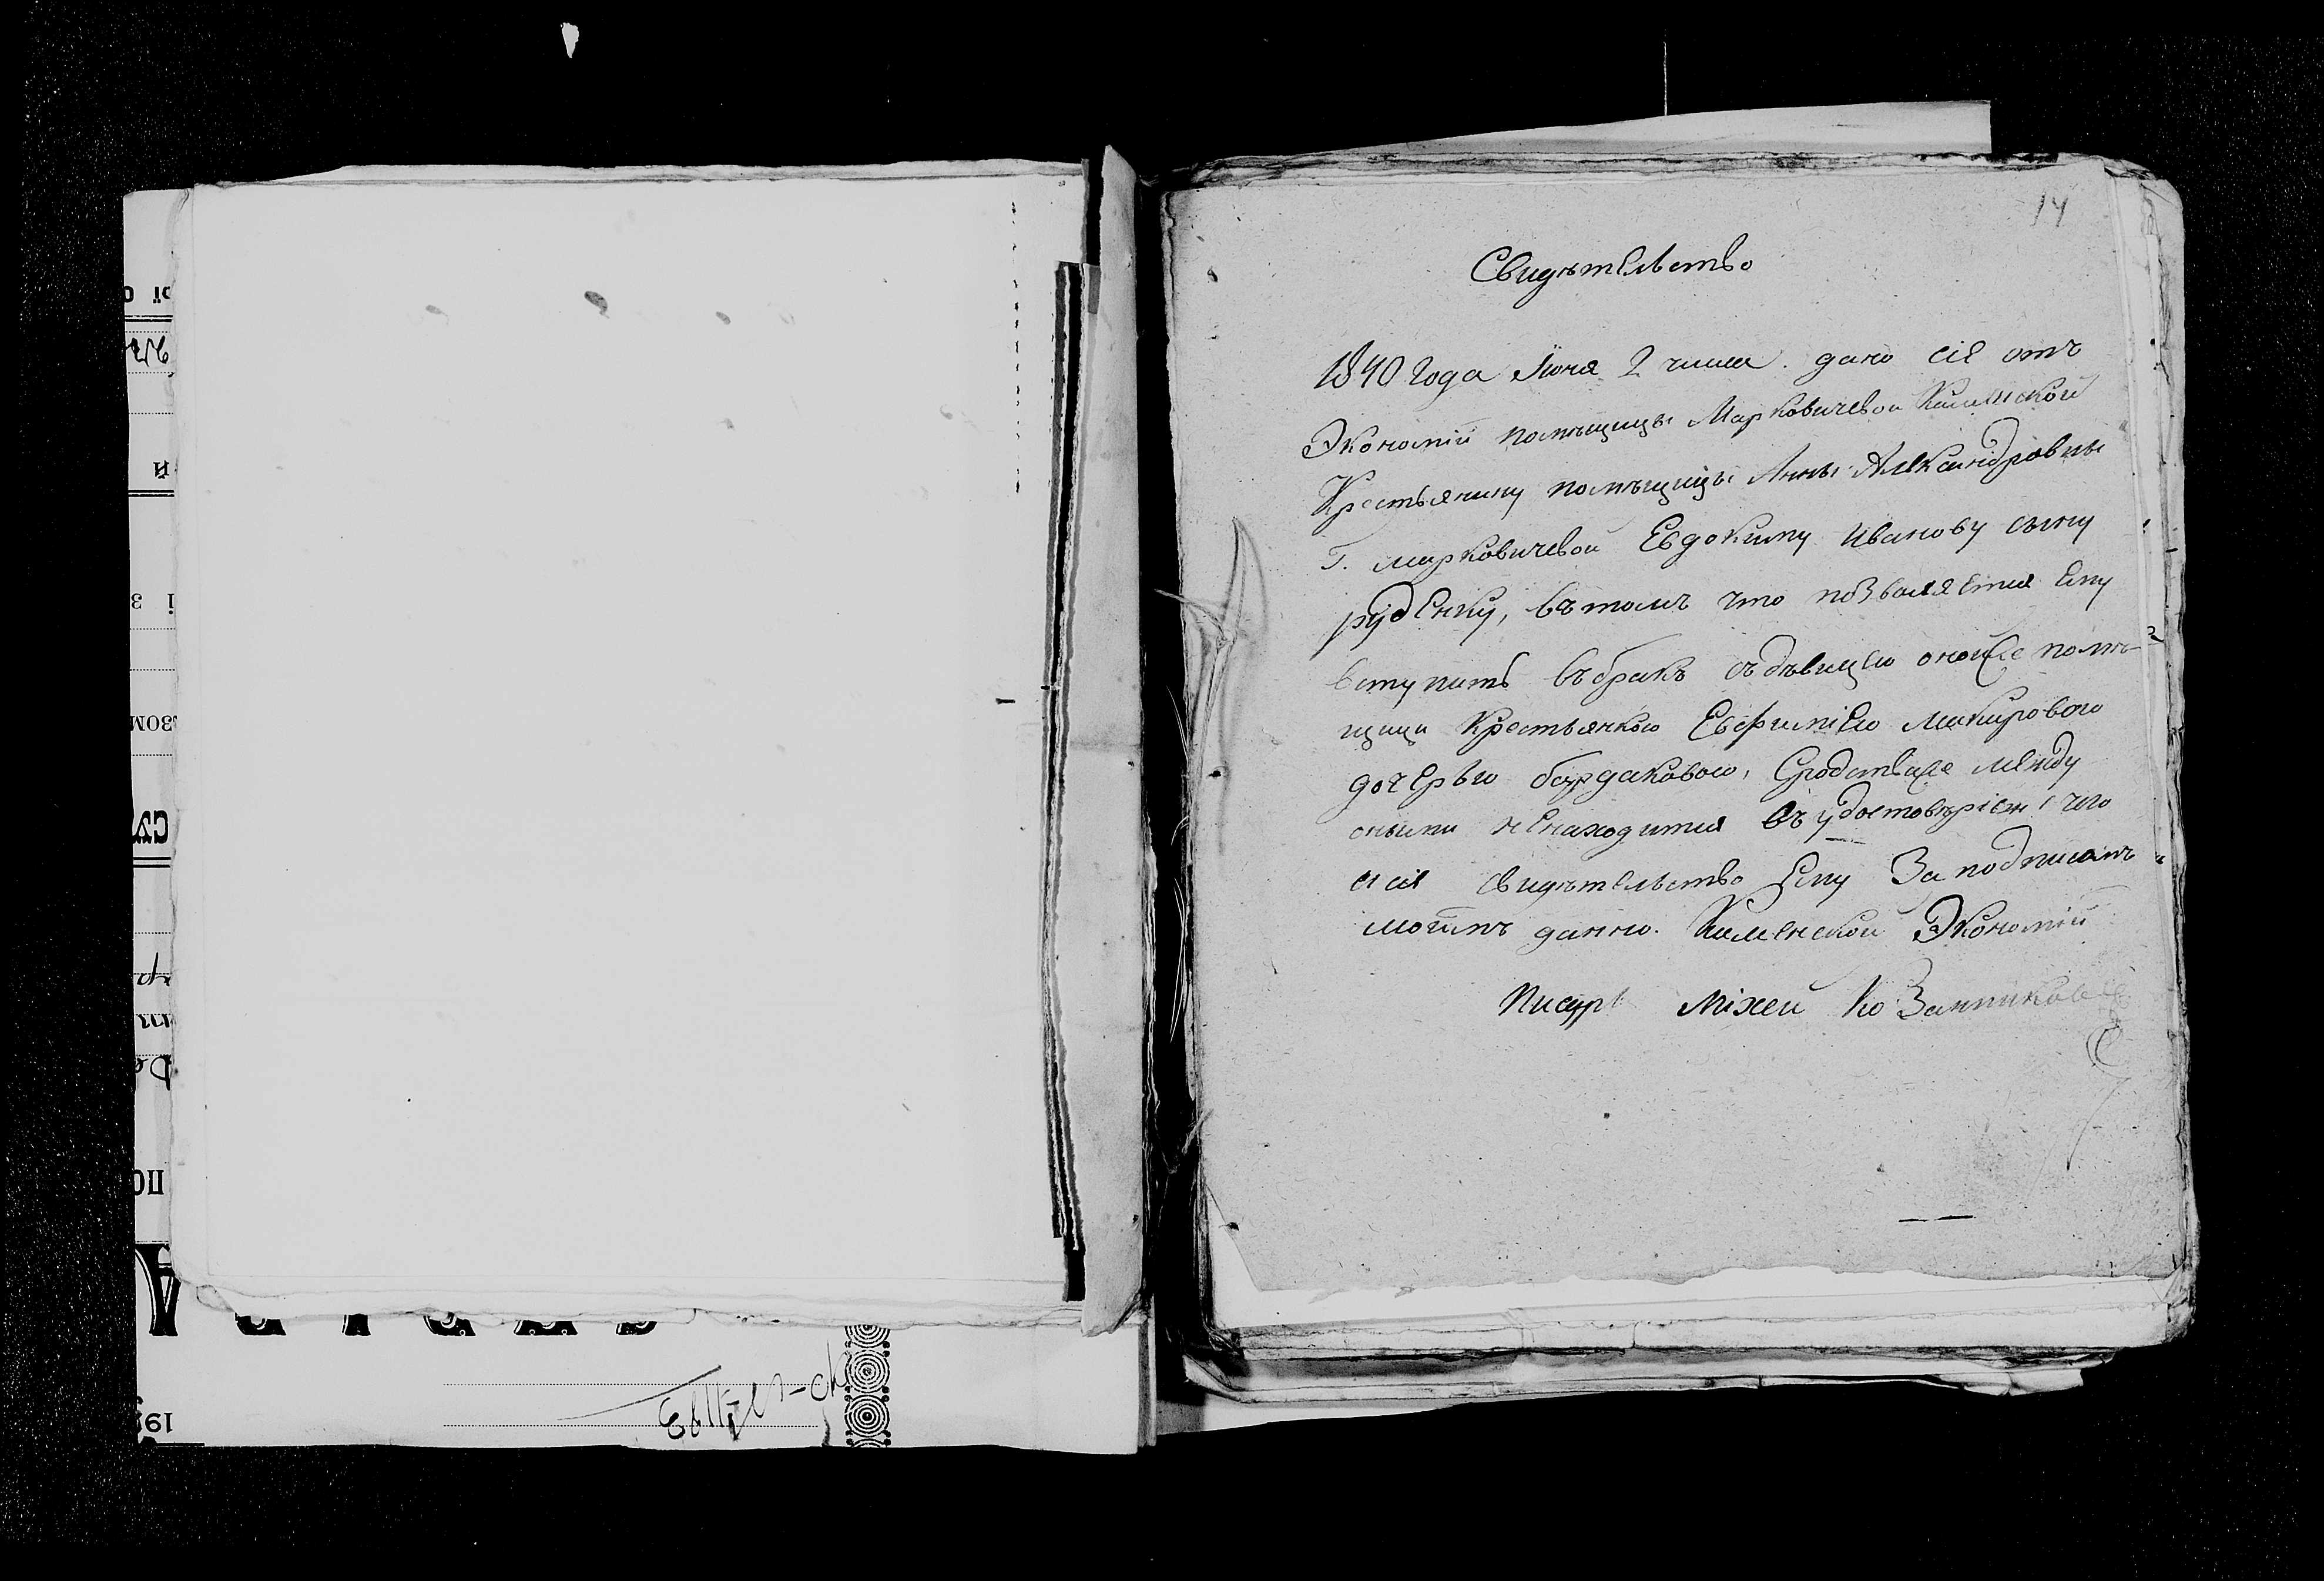 14
Свидѣтельство
1840 года Июня 2 числа. дано сіе отъ
Экономіи помѣщицы Марковичевой Каменской
Крестьянину помѣщицы Анны Александровны
Г. Марковичевой Евдокиму Иванову сыну
руденку, вътомъ что позволяется Ему
вступить въбракъ съдѣвицею оной же помѣ-
щици крестьянкою Евфиміею Макаровою
дочерью бурдаковою, Сродства же между
оными ненаходится въ удостовѣріеніе чего
и сіе свидѣтельство Ему За подписомъ
моимъ данно. Каменской Экономіи
Писарь Міхей